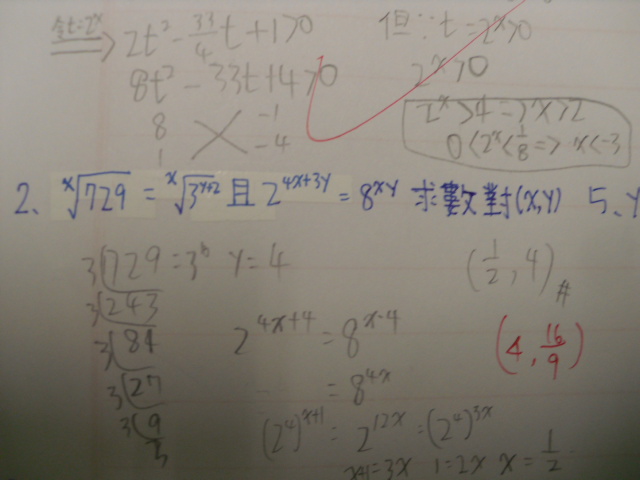 令t=2^x ⇒ 2t² - 33/4 t + 1 > 0 但∵t = 2^x > 0
8t² - 33t + 4 > 0 2^x > 0
8 -1 2^x > 4 => x > 2
1 -4 0 < 2^x < 1/8 => x < -3
2、 ˣ√729 = ˣ√3^(y+2) 且 2^(4x+3y) = 8^(xy) 求數對(x,y) 5、y
3 729 = 3^6 y = 4 (1/2, 4)#
3 243
3 81 2^(4x+4) = 8^(x·4) (4, 16/9)
3 27 = 8^(4x)
3 9 (2^4)^(x+1) = 2^(12x) = (2^4)^(3x)
3 x+1 = 3x 1 = 2x x = 1/2